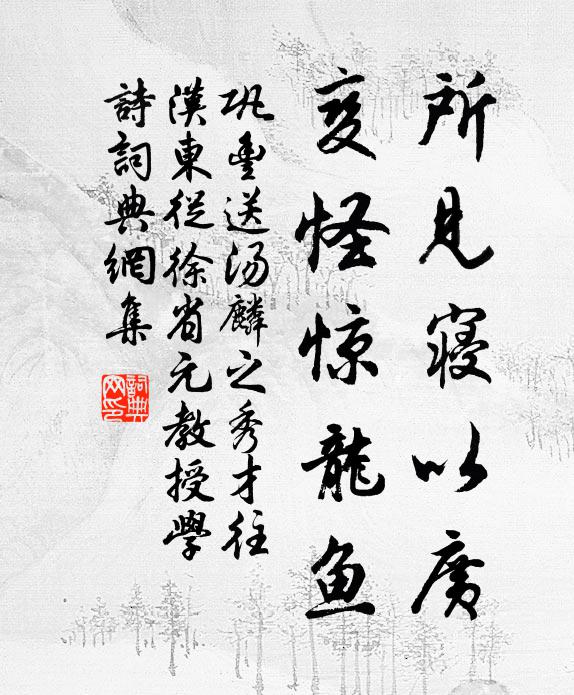 所見寝以廣
变怪惊龍魚
巩豊送汤麟之秀才往
漢東從徐省元教授學
詩詞典網集
詞典网印